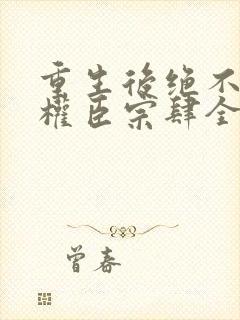 重生後绝不
權臣宗肆全
曾春